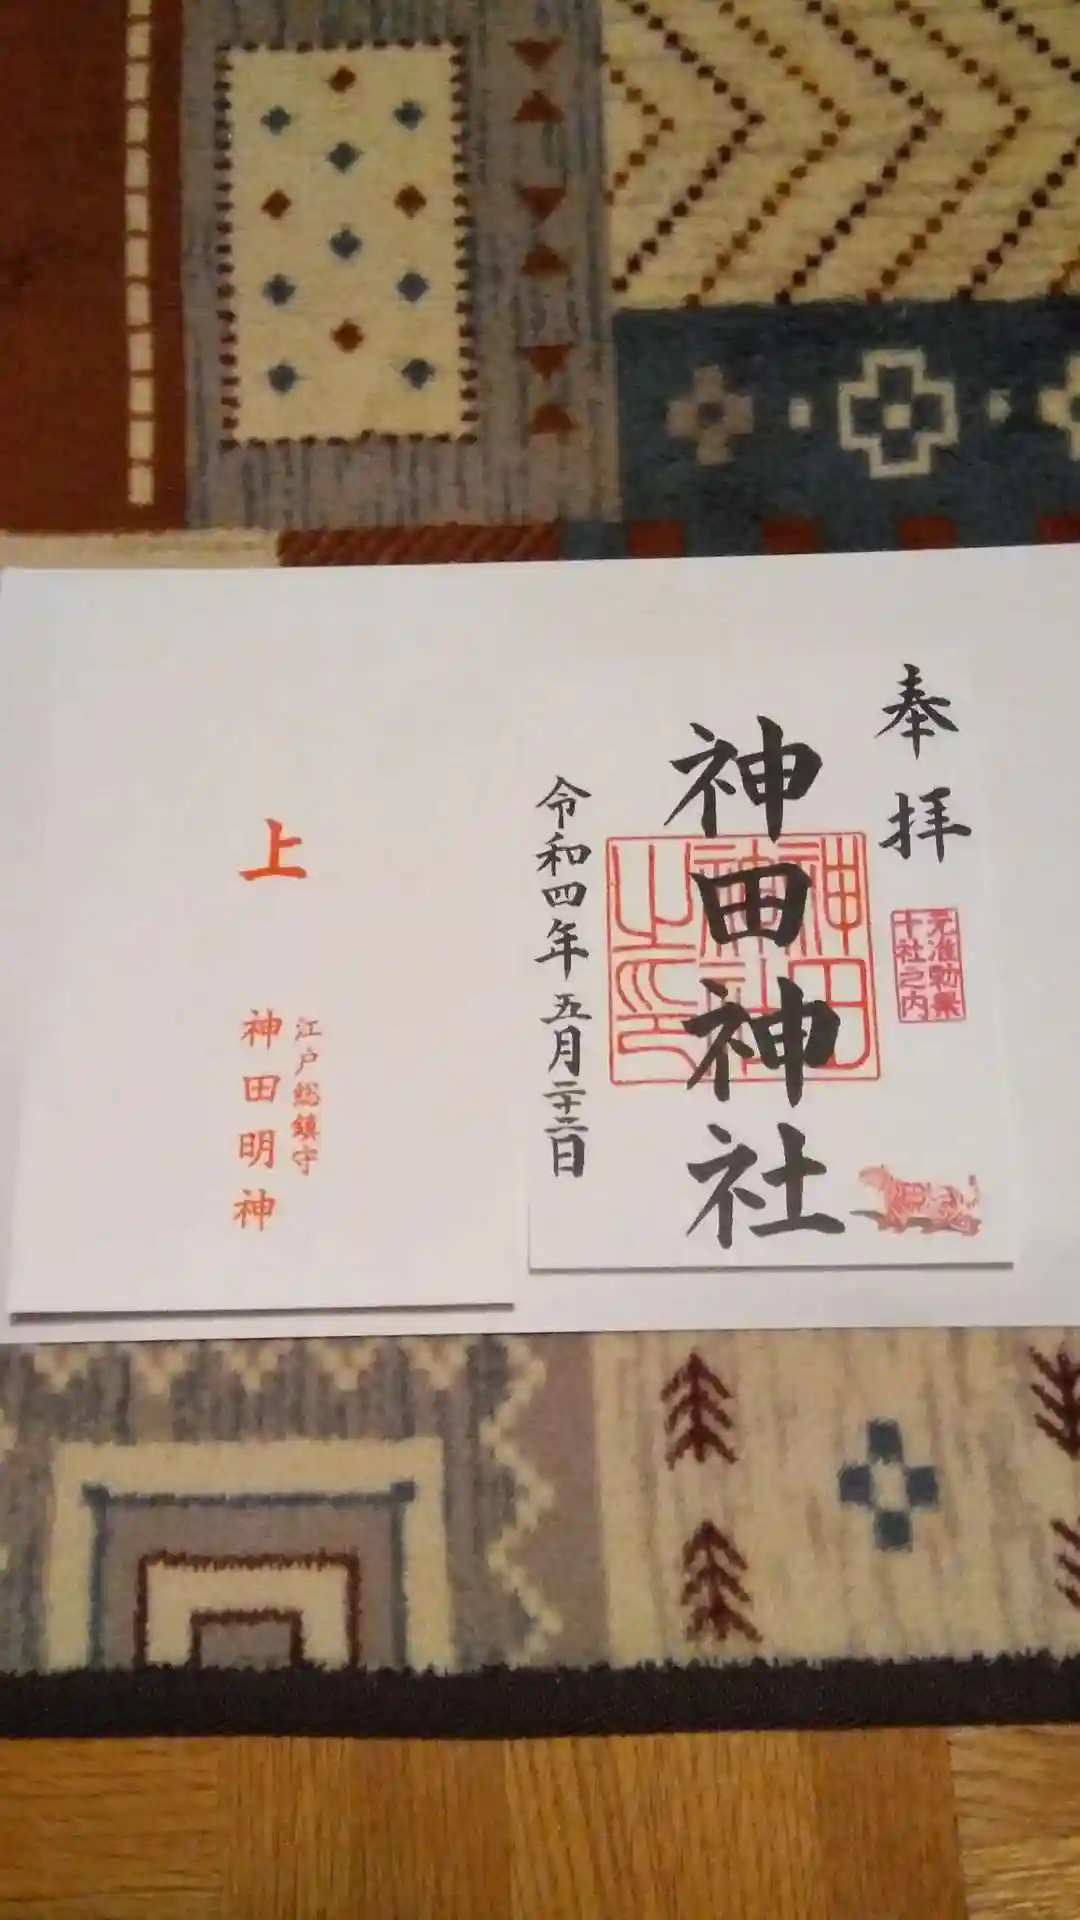 奉拝
元准勅祭
十社之内
神田神社
神田
神社
之印
令和四年五月二十二日
上
江戸総鎮守
神田明神